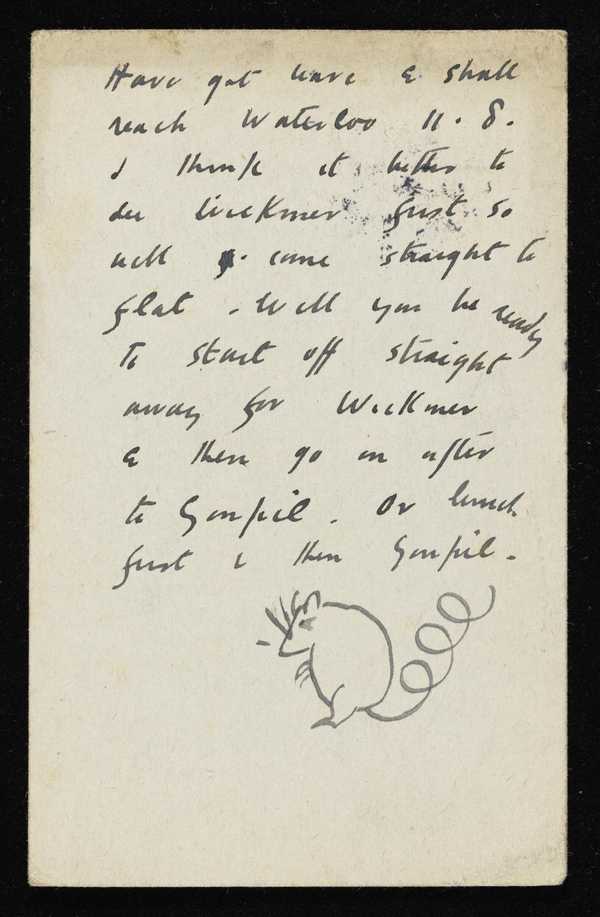 Have got leave & shall
reach Waterloo 11.8.
I think it better to
see Wickmer first so
will come straight to
flat. Will you be ready
to start off straight
away for Wickmer
& then go on after
to Goupil. Or lunch
first & then Goupil.